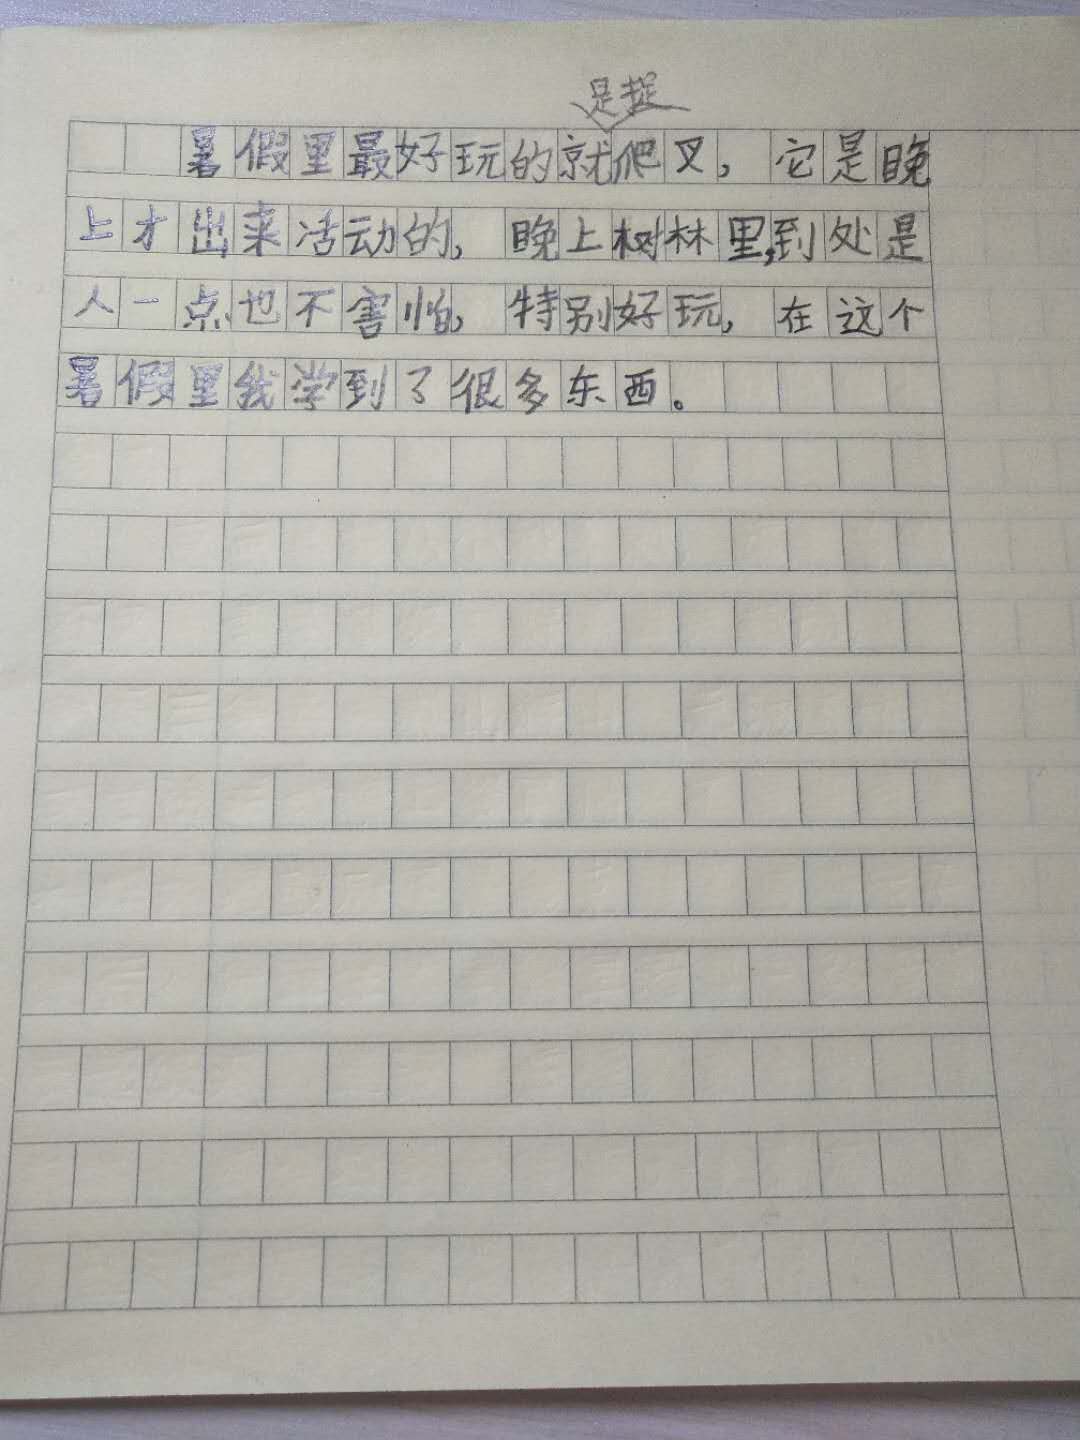 是捉
暑假里最好玩的就爬叉，它是晚
上才出来活动的，晚上树林里，到处是
人一点也不害怕，特别好玩，在这个
暑假里我学到了很多东西。